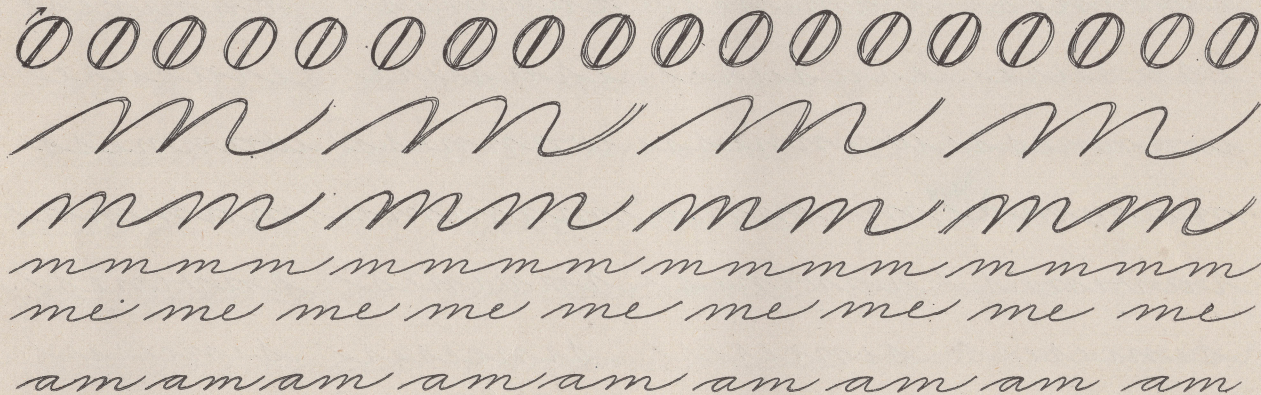 m m m m
mm mm mm mm
mmmm mmmm mmmm mmmm
me me me me me me me me me
am am am am am am am am am